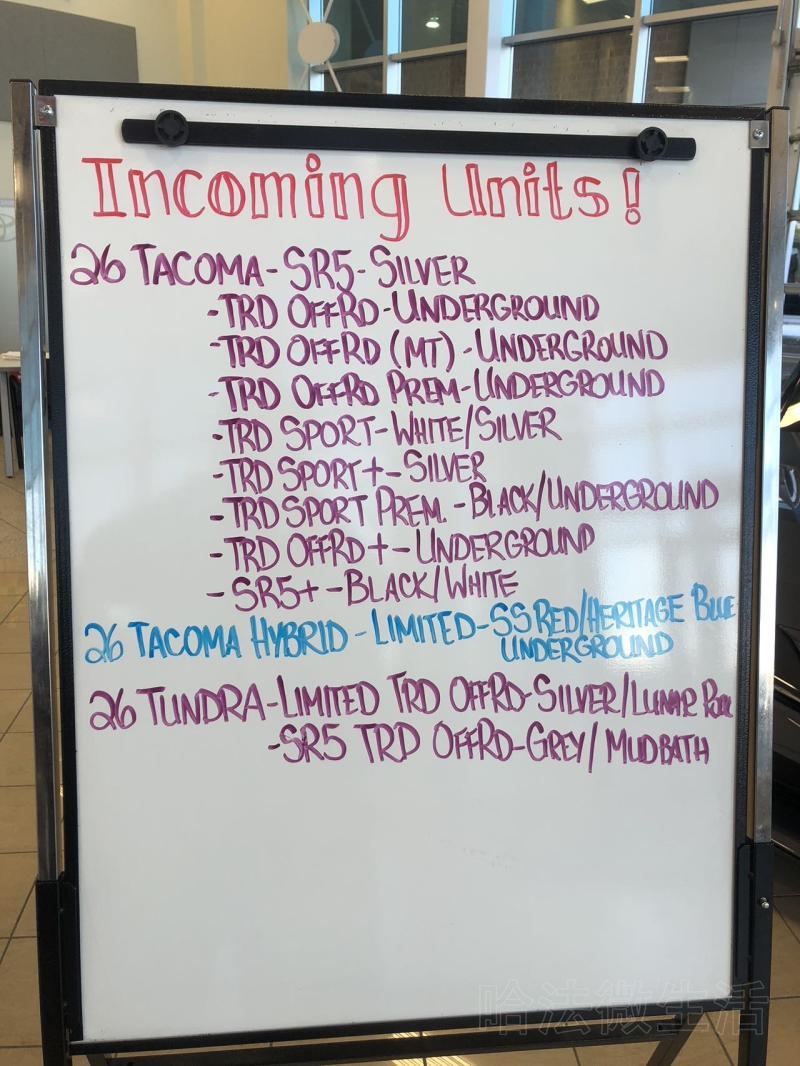 Incoming Units!
26 TACOMA - SR5 - SILVER
- TRD OFFRD - UNDERGROUND
- TRD OFFRD (MT) - UNDERGROUND
- TRD OFFRD PREM - UNDERGROUND
- TRD SPORT - WHITE/SILVER
- TRD SPORT+ - SILVER
- TRD SPORT PREM. - BLACK/UNDERGROUND
- TRD OFFRD+ - UNDERGROUND
- SR5+ - BLACK/WHITE
26 TACOMA HYBRID - LIMITED - SS RED/HERITAGE BLUE
UNDERGROUND
26 TUNDRA - LIMITED TRD OFFRD - SILVER/LUNAR
- SR5 TRD OFFRD - GREY/MUDBATH
哈法微生活